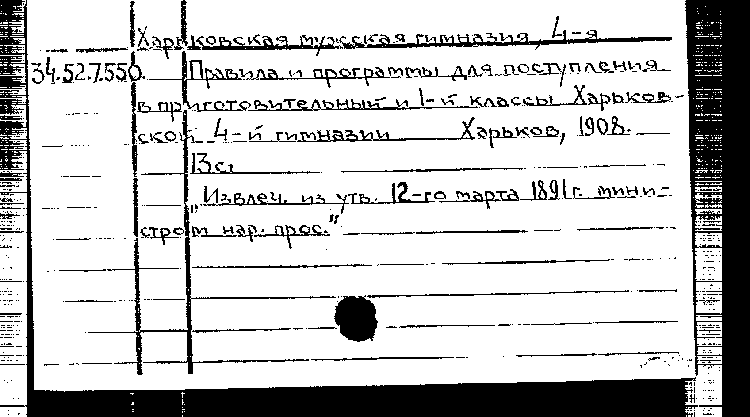 Харьковская мужская гимназия, 4-я
34.52.7.550. Правила и программы для поступления
в приготовительный и 1-й классы Харьков-
ской 4-й гимназии Харьков, 1908.
13с.
„Извлеч. из утв. 12-го марта 1891г. мини-
стром нар. прос."